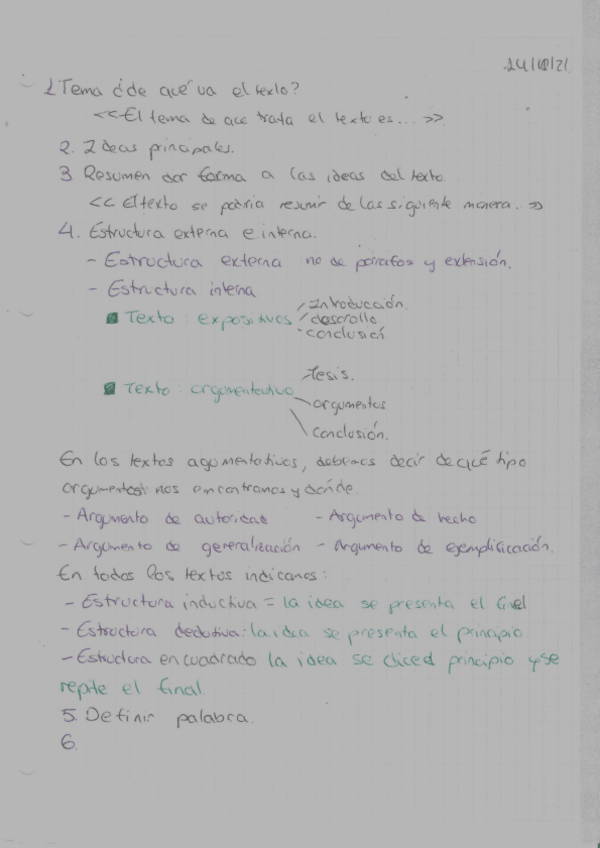 1 Tema ¿de qué va el texto?
<<El tema de que trata el texto es... >>
2. Ideas principales.
3 Resumen dar forma a las ideas del texto.
<< El texto se podría resumir de las siguiente manera. >>
4. Estructura externa e interna.
- Estructura externa no de parrafos y extensión.
- Estructura interna
Texto: expositivos
Introducción.
desarrollo
conclusión
Texto: argumentativo
tesis.
argumentos
conclusión.
En los textos agumentativos, debemos decir de qué tipo
argumentos nos encontramos y dónde.
- Argumento de autoridad - Argumento de hecho
- Argumento de generalización - Argumento de ejemplificación.
En todos los textos indicamos:
- Estructura inductiva = la idea se presenta el final
- Estructura dedutiva: la idea se presenta el principio.
- Estructura encuadrado la idea se dice el principio y se
repite el final.
5. Definir palabra.
6.